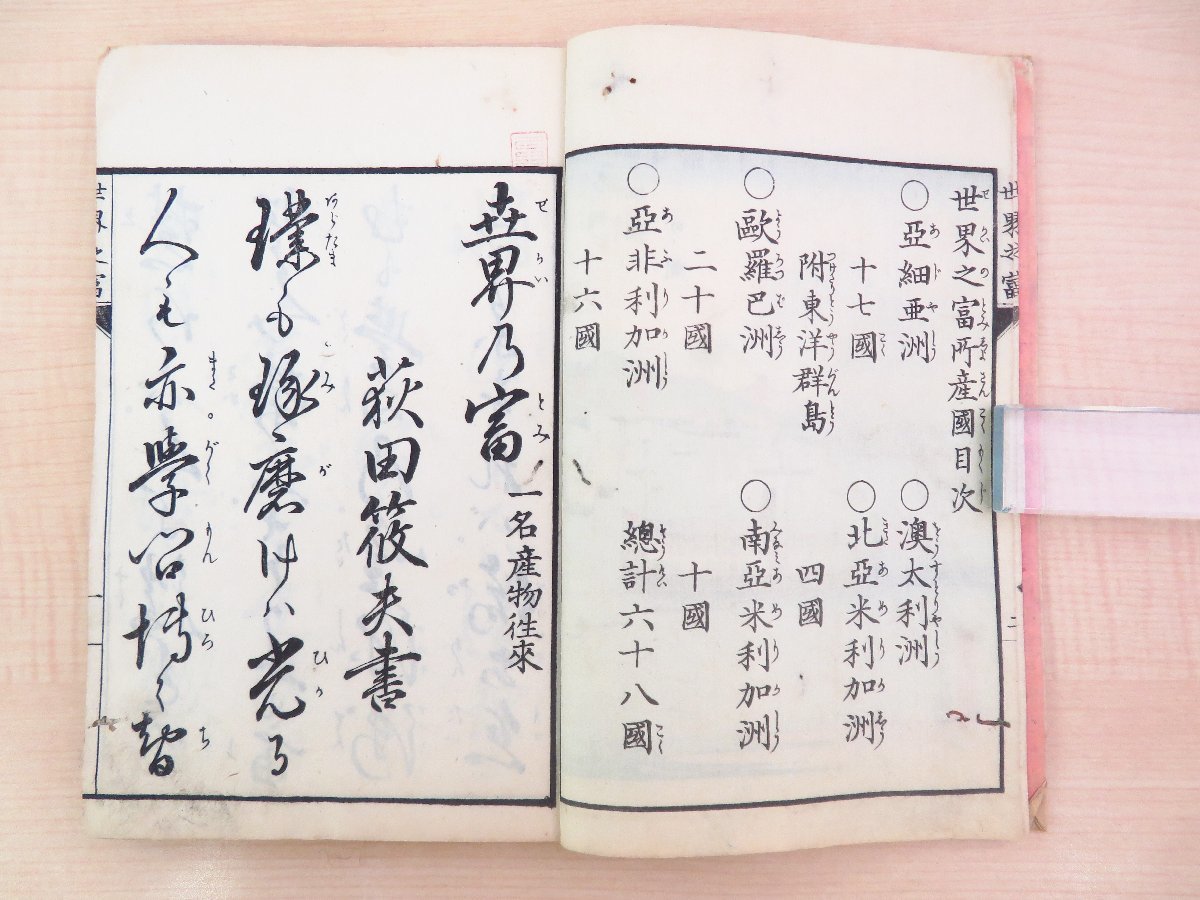 世界之富
世界之富所産國目次
○亞細亜洲
十七國
附東洋群島
○歐羅巴洲
二十國
○亞非利加洲
十六國
○澳太利洲
○北亞米利加洲
四國
○南亞米利加洲
十國
總計六十八國
二
世界乃富
一名産物往來
荻田筱夫書
璞も琢磨け八光る
人も亦學問博く智
世界之富
一